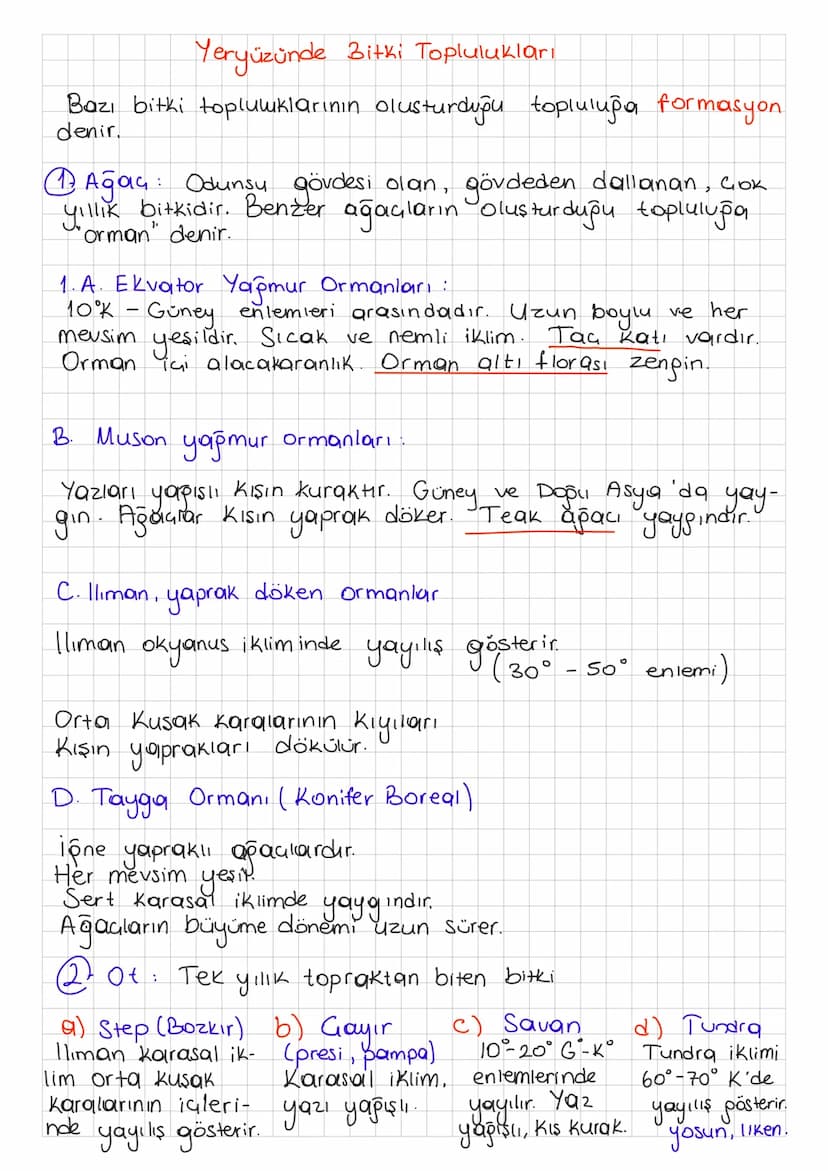 Yeryüzünde Bitki Toplulukları
Bazı bitki topluluklarının oluşturduğu topluluğa formasyon
denir.
1) Ağaç : Odunsu gövdesi olan, gövdeden dallanan, çok
yıllık bitkidir. Benzer ağaçların oluşturduğu topluluğa
"orman" denir.
1.A. Ekvator Yağmur Ormanları :
10°K – Güney enlemleri arasındadır. Uzun boylu ve her
mevsim yeşildir. Sıcak ve nemli iklim. Taç katı vardır.
Orman içi alacakaranlık. Orman altı florası zengin.
B. Muson yağmur ormanları :
Yazları yağışlı kışın kuraktır. Güney ve Doğu Asya'da yay-
gın. Ağaçlar kışın yaprak döker. Teak ağacı yaygındır.
C. Ilıman, yaprak döken ormanlar
Ilıman okyanus ikliminde yayılış gösterir.
(30° - 50° enlemi)
Orta Kuşak karalarının kıyıları
Kışın yaprakları dökülür.
D. Tayga Ormanı (Konifer Boreal)
İğne yapraklı ağaçlardır.
Her mevsim yeşil.
Sert karasal iklimde yaygındır.
Ağaçların büyüme dönemi uzun sürer.
2) Ot : Tek yıllık topraktan biten bitki
a) Step (Bozkır)
Ilıman karasal ik-
lim orta kuşak
karalarının içleri-
nde yayılış gösterir.
b) Çayır
(presi, pampa)
Karasal iklim,
yazı yağışlı.
c) Savan
10°-20° G°-K°
enlemlerinde
yayılır. Yaz
yağışlı, kış kurak.
d) Tundra
Tundra iklimi
60°-70° K'de
yayılış gösterir.
yosun, liken.